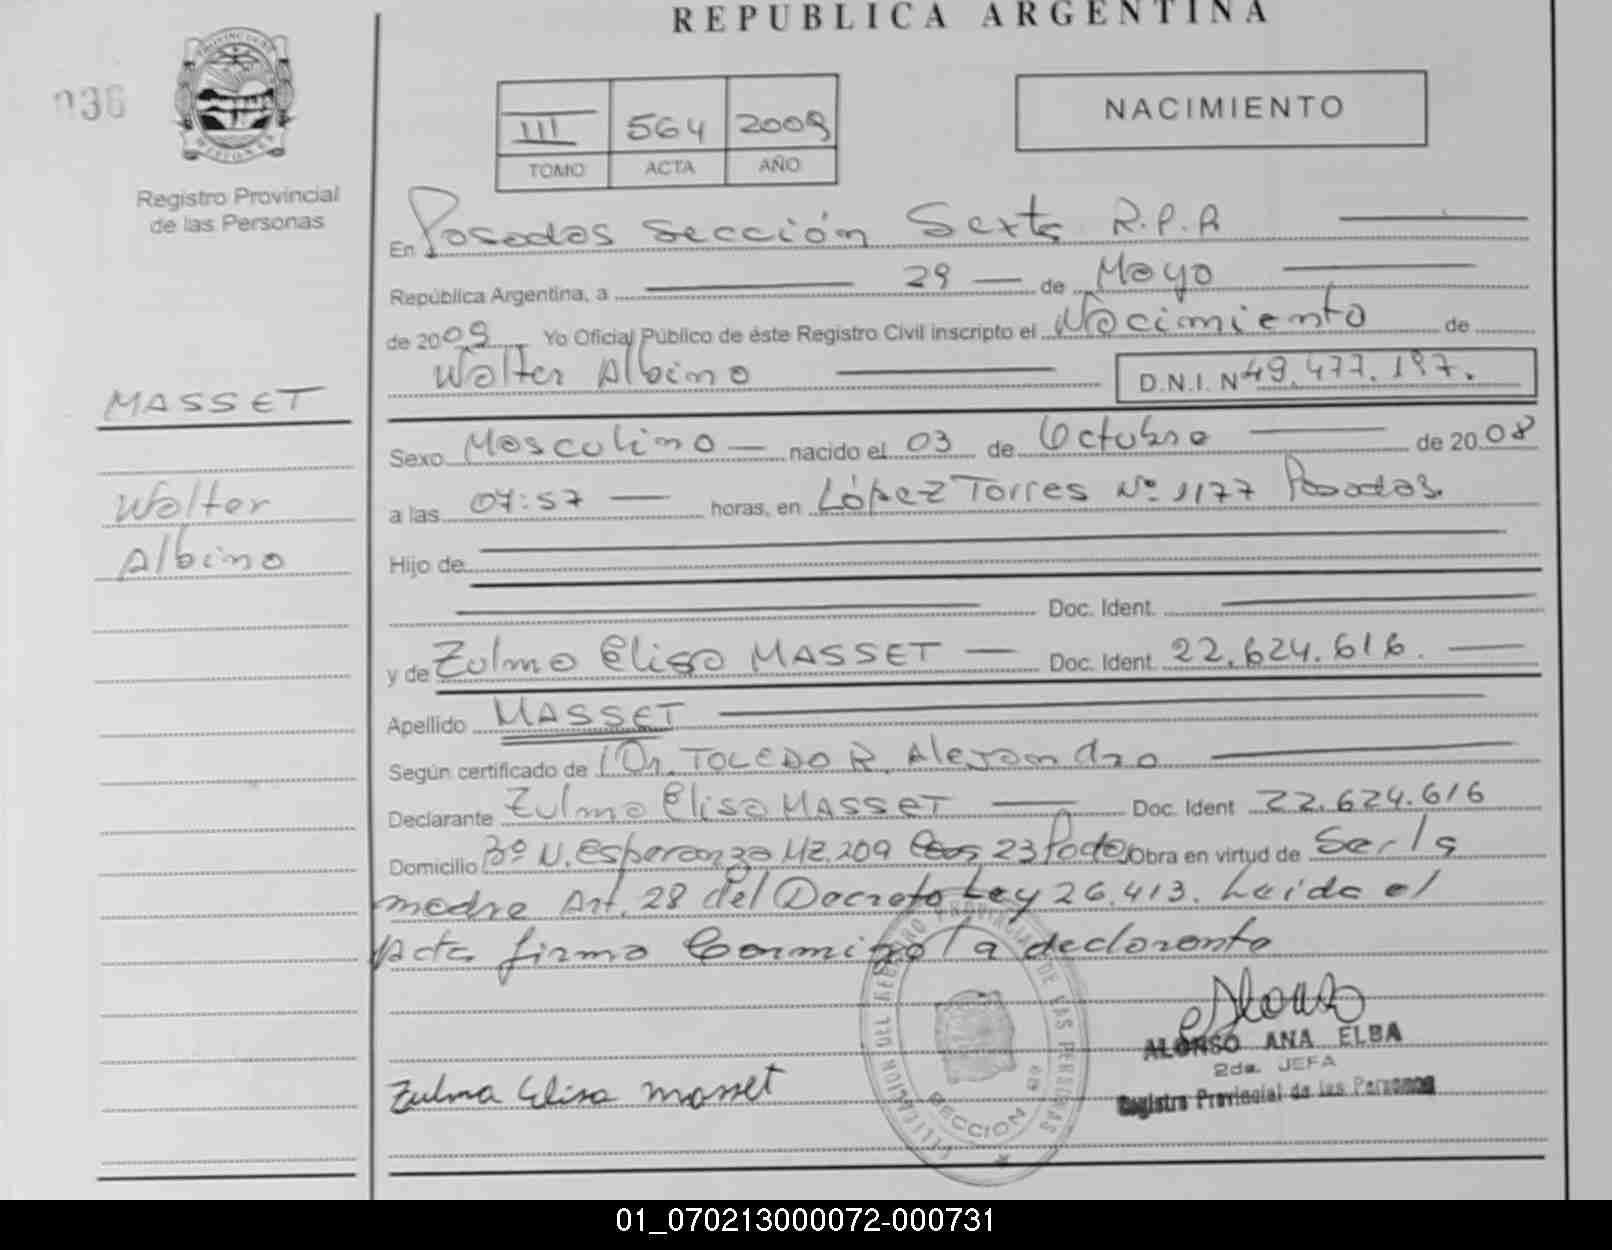 REPUBLICA ARGENTINA
036
III 564 2009
TOMO ACTA AÑO
NACIMIENTO
Registro Provincial
de las Personas
En Posadas Sección Sexta R.P.A
República Argentina, a 29 de Mayo
de 2009 Yo Oficial Público de éste Registro Civil inscripto el Nacimiento de
Walter Albino D.N.I. Nº 49.477.197.
MASSET
Walter
Albino
Sexo Masculino nacido el 03 de Octubre de 2008
a las 07:57 horas, en López Torres Nº 1177 Posadas.
Hijo de
Doc. Ident.
y de Zulma Elisa MASSET Doc. Ident. 22.624.616.
Apellido MASSET
Según certificado de Dr. TOLEDO R. Alejandro
Declarante Zulma Elisa MASSET Doc. Ident 22.624.616
Domicilio Bº N. Esperanza Mz. 209 Casa 23 Pdas Obra en virtud de Ser la
madre Art. 28 del Decreto Ley 26.413. Leída el
Acta firma Conmigo la declarante
Alonso
ALONSO ANA ELBA
2da. JEFA
Registro Provincial de las Personas
Zulma Elisa Masset
SECCION
01_070213000072-000731